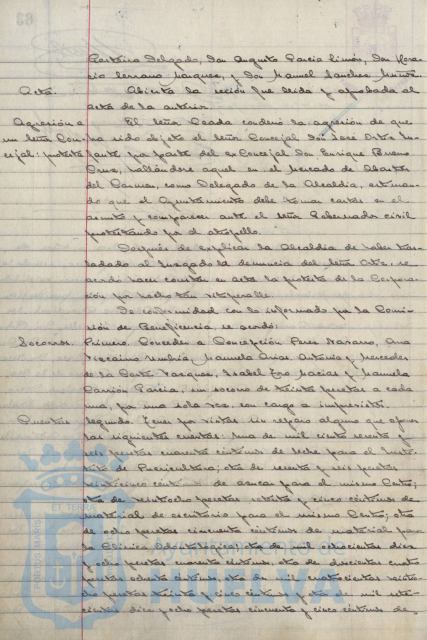 Gaetano Delgado, Don Augusto García Limón, Don Hora-
cio Serrano Marquez, y Don Manuel Sanchez Muñoz
Acta. Abierta la sesión fue leida y aprobada el
acta de la anterior.
Agresión a El Señor Ceada condenó la agresión de que
un Señor Con- ha sido objeto el Señor Concejal Don José Ortiz In-
cejal: protesta fante por parte del exConcejal Don Enrique Bueno
Cruz, hallándose aquel en el Mercado de Abastos
del Carmen, como Delegado de la Alcaldía, estiman-
do que el Ayuntamiento debe tomar cartas en el
asunto y comparecer ante el Señor Gobernador civil
protestando por el atropello.
Después de explicar la Alcaldía de haber tras-
ladado al Juzgado la denuncia del Señor Ortiz, se
acordó hacer constar en acta la protesta de la Corpora-
ción por hecho tan vituperable.
De conformidad con lo informado por la Comi-
sión de Beneficencia, se acordó:
Socorros. Primero. Conceder a Concepción Perez Navarro, Ana
Vizcaino Umbria, Manuela Arias Antonio y Mercedes
de la Corte Vazquez, Isabel Macias y Manuela
Carrión Garcia, un socorro de treinta pesetas a cada
una, por una sola vez, con cargo a imprevistos.
Cuentas Segundo. Tener por vistas sin reparo alguno que oponer
las siguientes cuentas: Una de mil ciento sesenta y
seis pesetas cuarenta céntimos de leche para el Insti-
tuto de Puericultura; otra de sesenta y seis pesetas
veinticinco céntimos de azucar para el mismo Centro;
otra de veintiocho pesetas setenta y cinco céntimos de
material de escritorio para el mismo Centro; otra
de ocho pesetas cincuenta céntimos de material para
la Clínica Odontológica; otra de mil ochocientas diez
y ocho pesetas cuarenta céntimos, otra de doscientas cuatro
pesetas ochenta céntimos, otra de mil cuatrocientas veintio-
cho pesetas treinta y cinco céntimos y otra de mil sete-
cientas diez y ocho pesetas cincuenta y cinco céntimos de
PORTUS MARIS ET TERRE
Ayuntamiento de
HUELVA